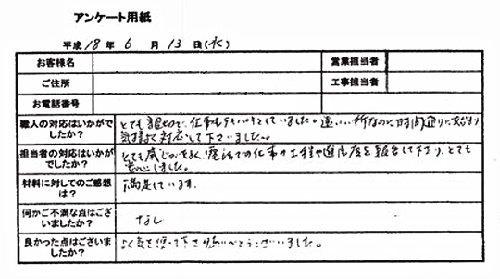 アンケート用紙
平成 18 年 6 月 13 日(火)
お客様名
営業担当者
ご住所
工事担当者
お電話番号
職人の対応はいかがで
したか?
とても親切で、仕事もテキパキとしていました。遠い所なのに時間通りに
気持よく対応して下さいました。
担当者の対応はいかが
でしたか?
とても感じがよく、電話で仕事の工程や進行度を報告して下さり、とても
材料に対してのご感想
は?
満足しています。
何かご不満な点はござ
いましたか?
なし
良かった点はございま
したか?
よく気を使って下さり有がとうございました。